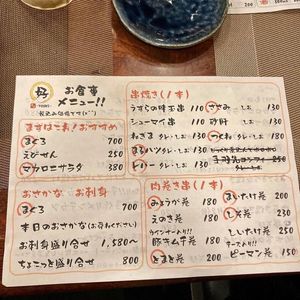 好
お食事
メニュー!!
まずはこれ!おすすめ
まぐろ 700
えびせん 250
マカロニサラダ 380
おさかな・お刺身
まぐろ 700
本日のおさかな(お尋ねください)
お刺身盛り合せ 1,580〜
ちょこっと盛り合せ 800
串焼き(1本)
うずらの味玉串 110
ささみ 130
シューマイ串 110
砂肝 130
ねぎま タレ・しお 130
つくね タレ・しお 180
タレ・しお 130
レバー タレ・しお 130
肉巻き串(1本)
みょうが巻 180
まいたけ巻 200
えのき巻 180
しそ巻 230
ウインナー入り!!
豚キムチ巻 180
しいたけ巻 250
チーズ入り!!
とまと巻 200
ピーマン巻 150